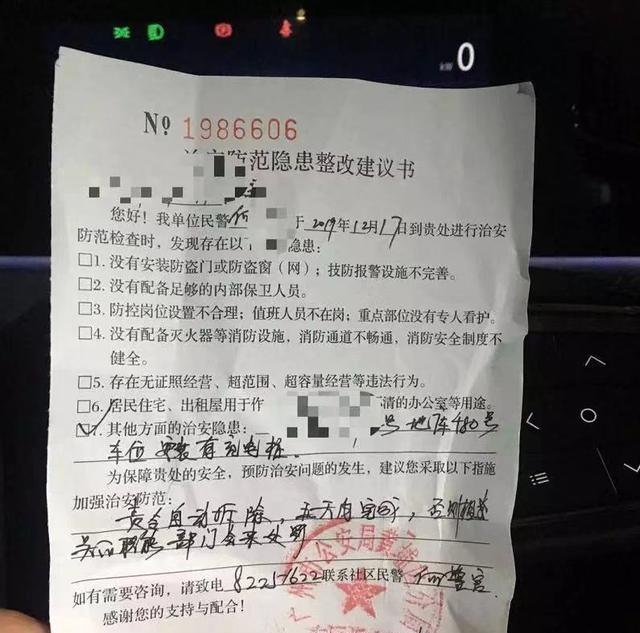 kW 0
№ 1986606
治安防范隐患整改建议书
您好！我单位民警何 于2019年12月17日到贵处进行治安
防范检查时，发现存在以 隐患：
□1. 没有安装防盗门或防盗窗（网）；技防报警设施不完善。
□2. 没有配备足够的内部保卫人员。
□3. 防控岗位设置不合理；值班人员不在岗；重点部位没有专人看护。
□4. 没有配备灭火器等消防设施，消防通道不畅通，消防安全制度不
健全。
□5. 存在无证照经营、超范围、超容量经营等违法行为。
□6. 居民住宅、出租屋用于作 清的办公室等用途。
☑7. 其他方面的治安隐患： 号地库480号
车位安装有充电桩
为保障贵处的安全，预防治安问题的发生，建议您采取以下措施
加强治安防范：
责令自动拆除，五天内完成，否则
职能部门 处理
如有需要咨询，请致电 82257622 联系社区民警 何警官
感谢您的支持与配合！
广州市公安局黄